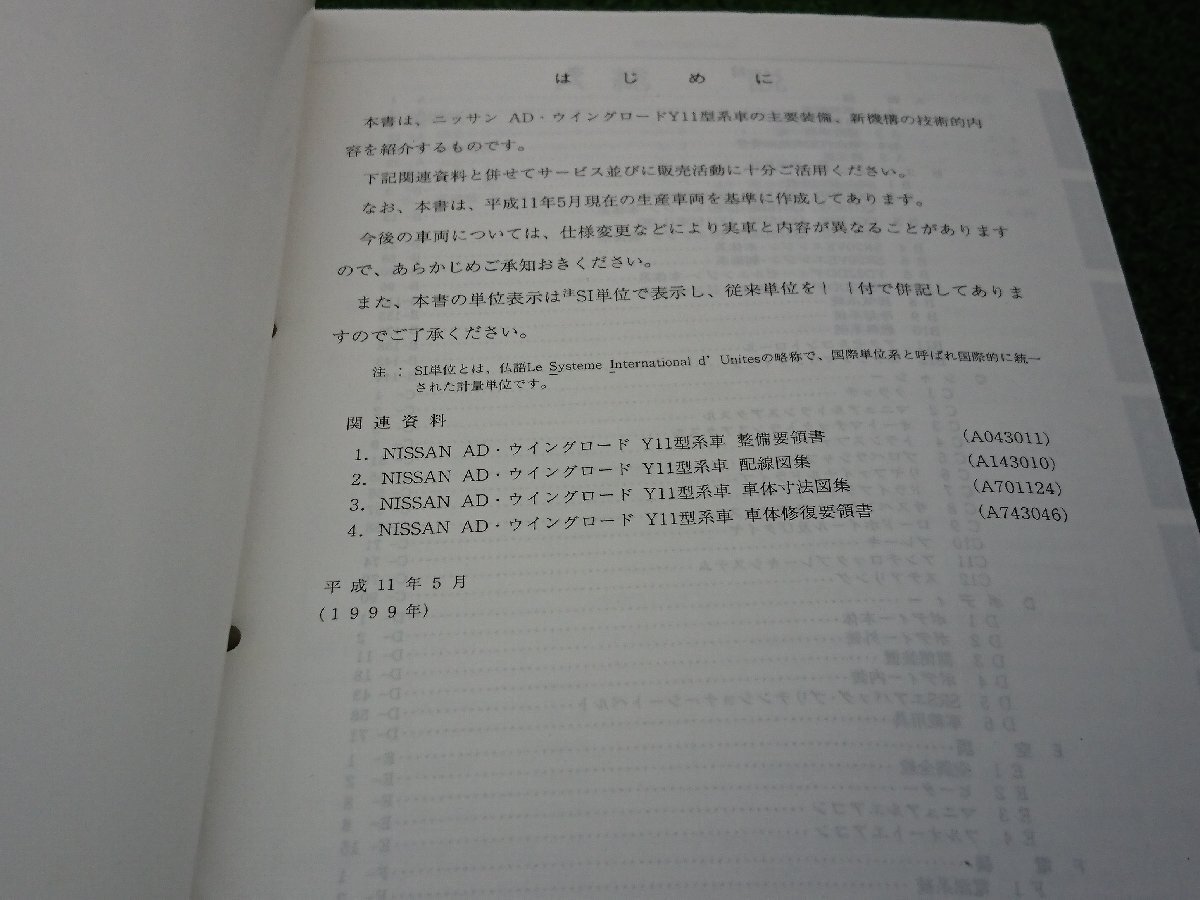 はじめに
本書は、ニッサン AD・ウイングロードY11型系車の主要装備、新機構の技術的内
容を紹介するものです。
下記関連資料と併せてサービス並びに販売活動に十分ご活用ください。
なお、本書は、平成11年5月現在の生産車両を基準に作成してあります。
今後の車両については、仕様変更などにより実車と内容が異なることがあります
ので、あらかじめご承知おきください。
また、本書の単位表示は注SI単位で表示し、従来単位を{ }付で併記してありま
すのでご了承ください。
注 : SI単位とは、仏語Le Systeme International d' Unitesの略称で、国際単位系と呼ばれ国際的に統一
された計量単位です。
関連資料
1. NISSAN AD・ウイングロード Y11型系車 整備要領書 (A043011)
2. NISSAN AD・ウイングロード Y11型系車 配線図集 (A143010)
3. NISSAN AD・ウイングロード Y11型系車 車体寸法図集 (A701124)
4. NISSAN AD・ウイングロード Y11型系車 車体修復要領書 (A743046)
平成11年5月
(1999年)